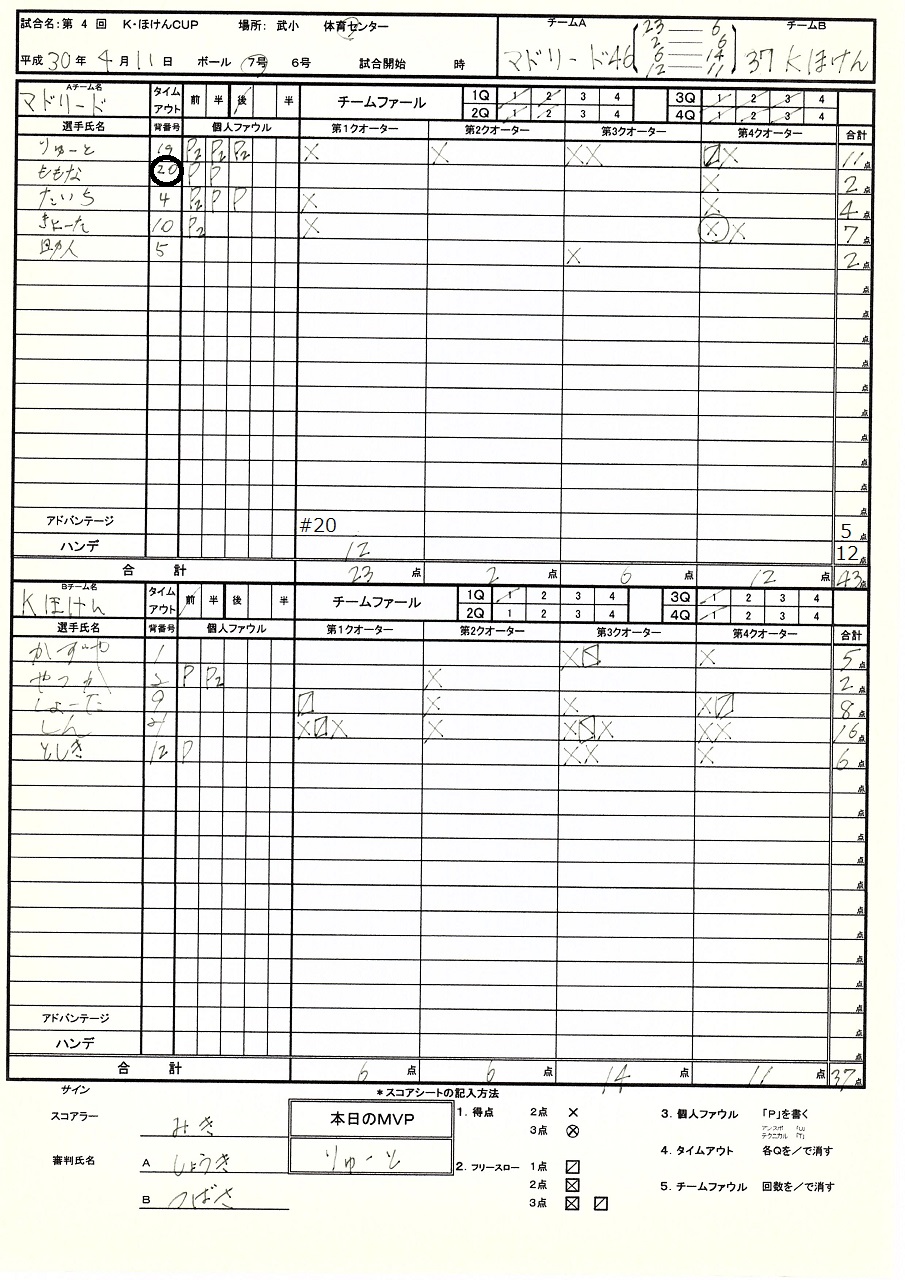 試合名:第 4 回 K・ほけんCUP 場所: 武小 体育センター
平成 30 年 4 月 11 日 ボール 7号 6号 試合開始 時
チームA チームB
マドリード46 23 — 6 37 Kほけん
2 — 6
6 — 14
12 — 11
Aチーム名 マドリード
タイムアウト 前 半 後 半 チームファール 1Q 1 2 3 4 3Q 1 2 3 4
2Q 1 2 3 4 4Q 1 2 3 4
選手氏名 背番号 個人ファウル 第1クオーター 第2クオーター 第3クオーター 第4クオーター 合計
りゅーと 19 P2 P2 P2 11点
ももな 20 P P 2点
たいち 4 P2 P P 4点
きょーた 10 P2 7点
5 2点
点
点
点
点
点
点
点
点
点
点
アドバンテージ #20 5点
ハンデ 12 12点
合 計 23 点 2 点 6 点 12 点 43点
Bチーム名 Kほけん
タイムアウト 前 半 後 半 チームファール 1Q 1 2 3 4 3Q 1 2 3 4
2Q 1 2 3 4 4Q 1 2 3 4
選手氏名 背番号 個人ファウル 第1クオーター 第2クオーター 第3クオーター 第4クオーター 合計
かずや 1 5点
2 P P2 2点
しょーた 9 8点
しん 21 16点
としき 12 P 6点
点
点
点
点
点
点
点
点
点
点
アドバンテージ 点
ハンデ 点
合 計 6 点 6 点 14 点 11 点 37点
サイン
スコアラー みき
審判氏名 A しょうき
B つばさ
本日のMVP
りゅーと
*スコアシートの記入方法
1. 得点 2点 ×
3点 ⊗
2. フリースロー 1点
2点
3点
3. 個人ファウル 「P」を書く
アンスポ 「U」
テクニカル 「T」
4. タイムアウト 各Qを/で消す
5. チームファウル 回数を/で消す